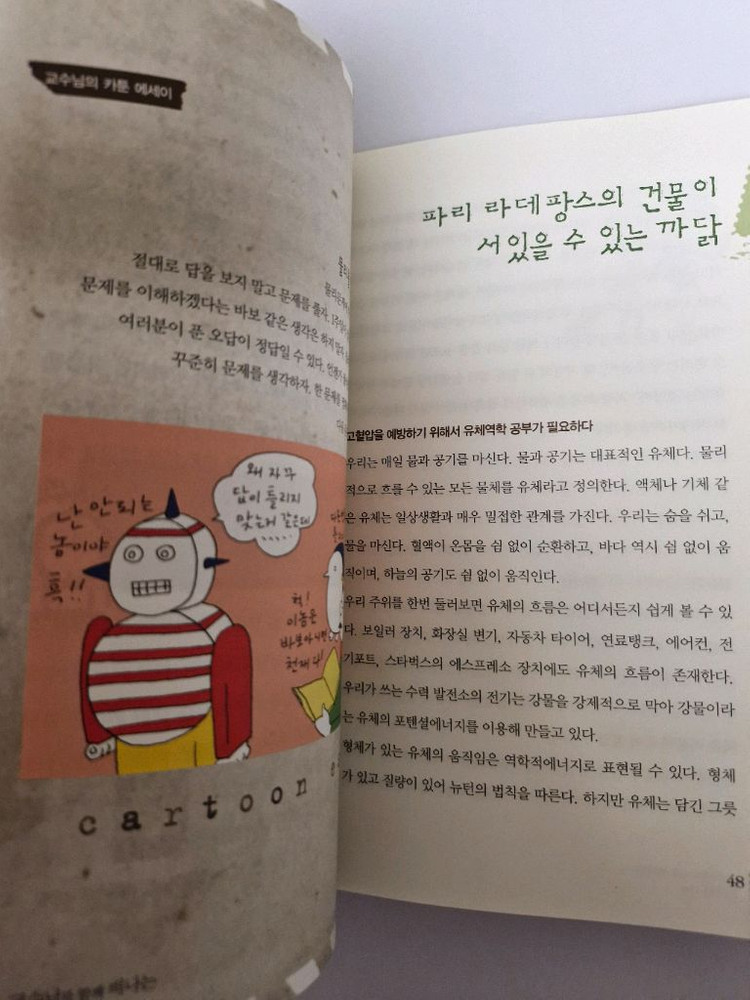 교수님의 카툰 에세이
절대로 답을 보지 말고 문제를 풀자.
문제를 이해하겠다는 바보 같은 생각은 하지 말자.
여러분이 푼 오답이 정답일 수 있다.
꾸준히 문제를 생각하자. 한 문제를
난 안되는
놈이야
흑!!
왜 자꾸
답이 틀리지
맞는거 같은데
.....
헉!
이놈은
바보아니면
천재다!
cartoon e
파리 라데팡스의 건물이
서있을 수 있는 까닭
고혈압을 예방하기 위해서 유체역학 공부가 필요하다
우리는 매일 물과 공기를 마신다. 물과 공기는 대표적인 유체다. 물리
적으로 흐를 수 있는 모든 물체를 유체라고 정의한다. 액체나 기체 같
은 유체는 일상생활과 매우 밀접한 관계를 가진다. 우리는 숨을 쉬고,
물을 마신다. 혈액이 온몸을 쉼 없이 순환하고, 바다 역시 쉼 없이 움
직이며, 하늘의 공기도 쉼 없이 움직인다.
우리 주위를 한번 둘러보면 유체의 흐름은 어디서든지 쉽게 볼 수 있
다. 보일러 장치, 화장실 변기, 자동차 타이어, 연료탱크, 에어컨, 전
기포트, 스타벅스의 에스프레소 장치에도 유체의 흐름이 존재한다.
우리가 쓰는 수력 발전소의 전기는 강물을 강제적으로 막아 강물이라
는 유체의 포텐셜에너지를 이용해 만들고 있다.
형체가 있는 유체의 움직임은 역학적에너지로 표현될 수 있다. 형체
가 있고 질량이 있어 뉴턴의 법칙을 따른다. 하지만 유체는 담긴 그릇
48